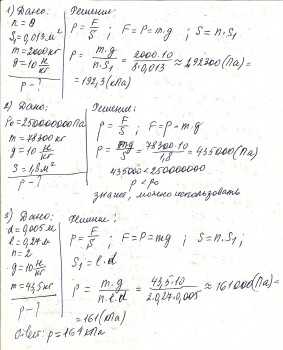 1) Дано: Решение:
n = 8
S₁ = 0,013 м²
m = 2000 кг
g = 10 Н/кг
p - ?
p = F/S ; F = P = m·g ; S = n·S₁
p = m·g/n·S₁ = 2000·10/8·0,013 ≈ 192300 (Па) =
= 192,3 (кПа)
2) Дано: Решение:
p₀ = 250000000 Па
m = 78300 кг
g = 10 Н/кг
S = 1,8 м²
p - ?
p = F/S ; F = P = m·g
p = mg/S = 78300·10/1,8 = 435000 (Па)
435000 < 250000000
p < p₀
значит, можно использовать
3) Дано: Решение:
d = 0,005 м
l = 0,27 м
n = 2
g = 10 Н/кг
m = 43,5 кг
p - ?
p = F/S ; F = P = mg ; S = n·S₁ ;
S₁ = l·d
p = m·g/n·l·d = 43,5·10/2·0,27·0,005 ≈ 161000 (Па) =
= 161 (кПа)
Ответ: p = 161 кПа